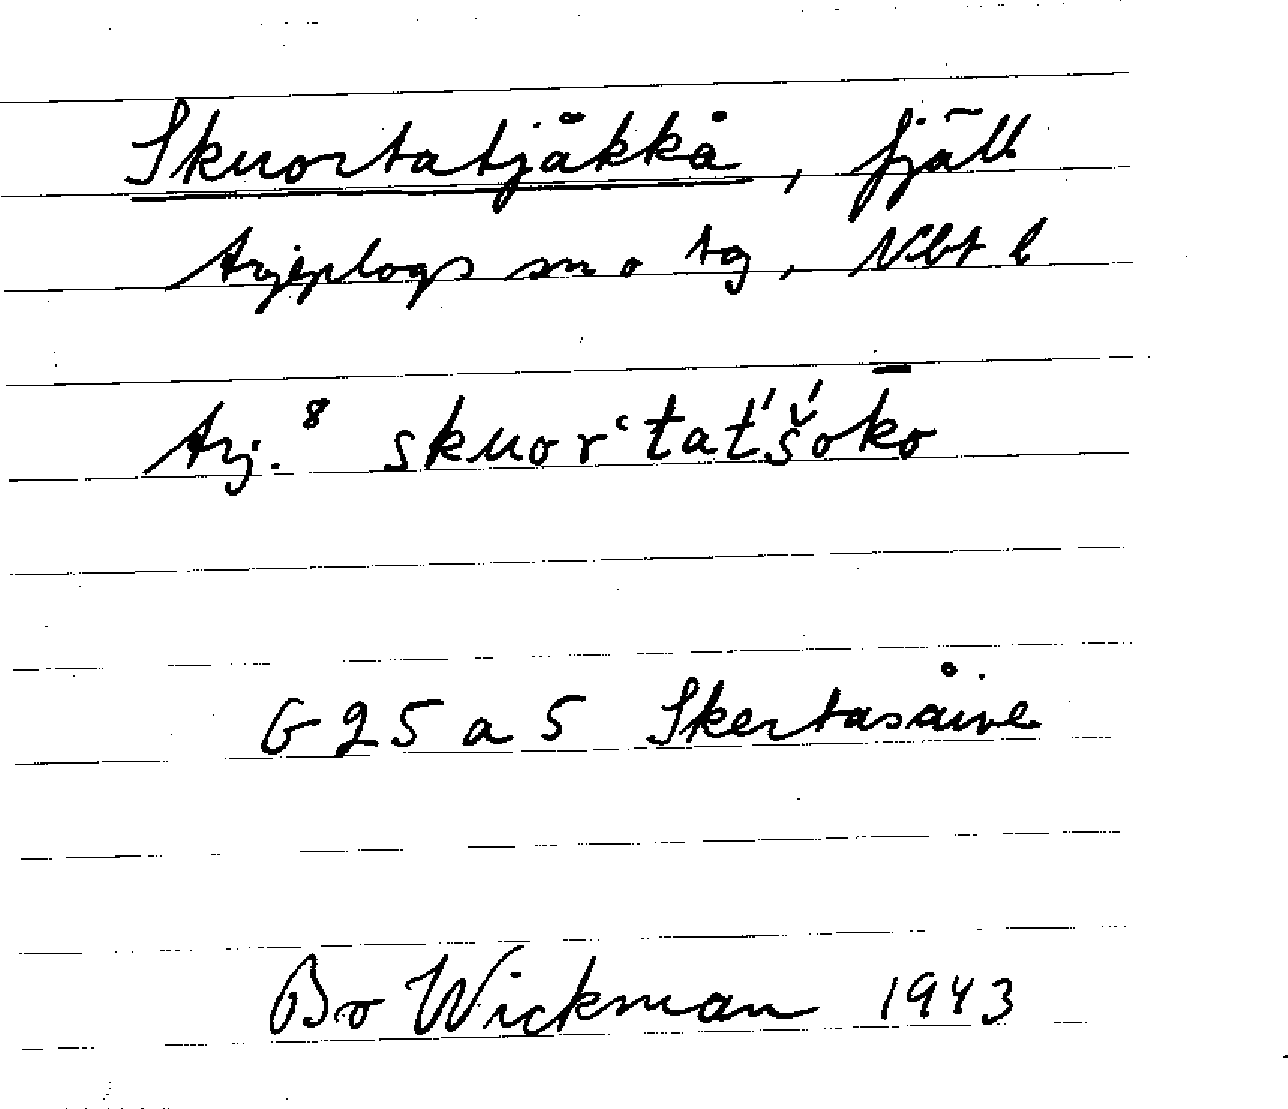 Skuortatjåkkå, fjäll
Arjeplogs sn o tg, Nbt l
Arj.⁸ skuorʿtat́š́ok̄o
G 25 a 5 Skertasåive
Bo Wickman 1943